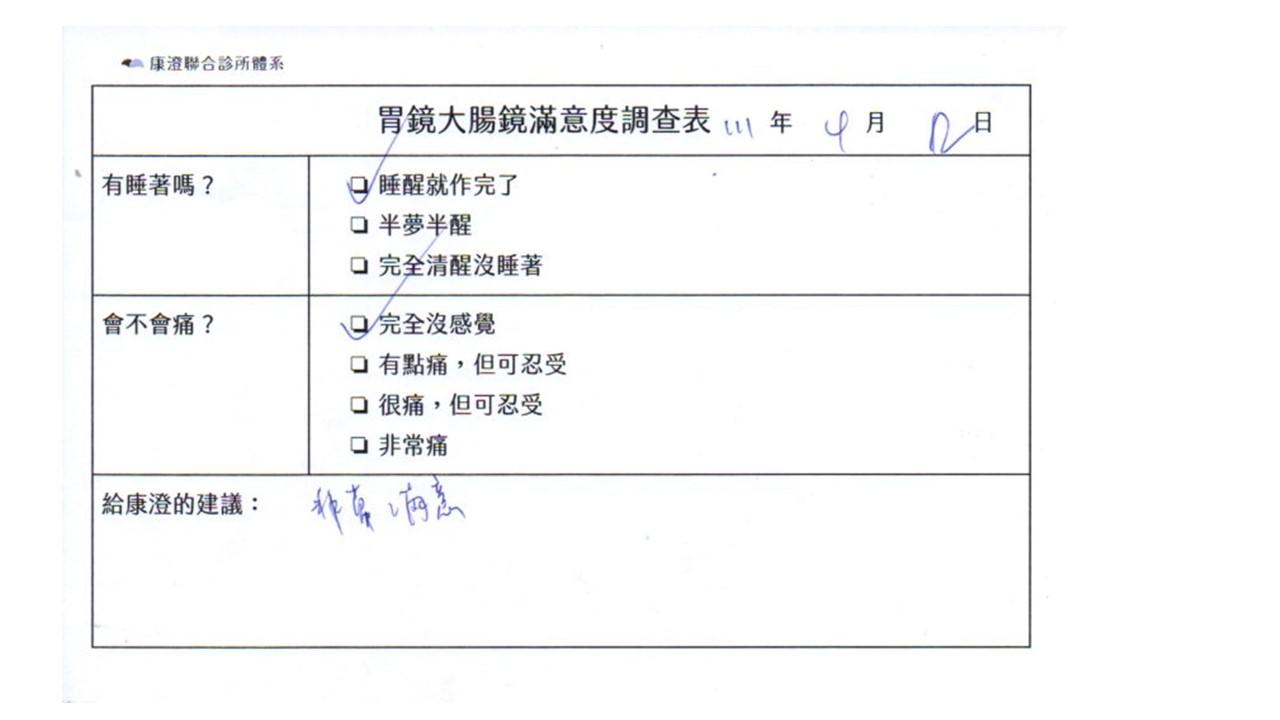 康澄聯合診所體系
胃鏡大腸鏡滿意度調查表 111 年 4 月 12 日
有睡著嗎？
☑ 睡醒就作完了
☐ 半夢半醒
☐ 完全清醒沒睡著
會不會痛？
☑ 完全沒感覺
☐ 有點痛，但可忍受
☐ 很痛，但可忍受
☐ 非常痛
給康澄的建議： 非常滿意